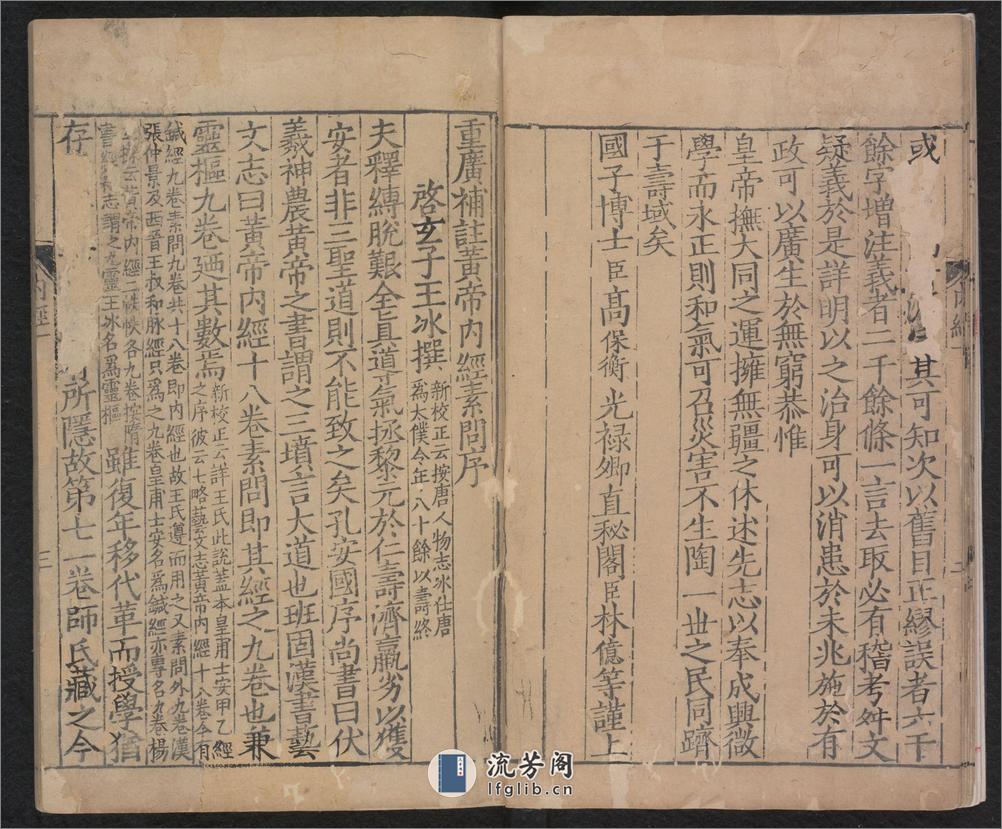 或其可知次以舊目正繆誤者六千
餘字增注義者二千餘條一言去取必有稽考舛文
疑義於是詳明以之治身可以消患於未兆施於有
政可以廣生於無窮恭惟
皇帝撫大同之運擁無疆之休述先志以奉成興微
學而永正則和氣可召災害不生陶一世之民同躋
于壽域矣
國子博士臣髙保衡光禄卿直秘閣臣林億等謹上
重廣補註黃帝内經素問序
啓玄子王冰撰
新校正云按唐人物志冰仕唐
爲太僕令年八十餘以壽終
夫釋縛脫艱全真導氣拯黎元於仁壽濟羸劣以獲
安者非三聖道則不能致之矣孔安國序尚書曰伏
羲神農黃帝之書謂之三墳言大道也班固漢書藝
文志曰黃帝内經十八卷素問即其經之九卷也兼
靈樞九卷廼其數焉
新校正云詳王氏此說蓋本皇甫士安甲乙經
之序彼云七略藝文志黃帝内經十八卷今有
鍼經九卷素問九卷共十八卷即内經也故王氏遵而用之又素問外九卷漢
張仲景及西晉王叔和脉經只爲之九卷皇甫士安名爲鍼經亦專名九卷楊
云黃帝内經二帙帙各九卷按隋
書經志謂之九靈王冰名爲靈樞
雖復年移代革而授學猶
存所隱故第七一卷師氏藏之今
内經
三
流芳阁
lfglib.cn